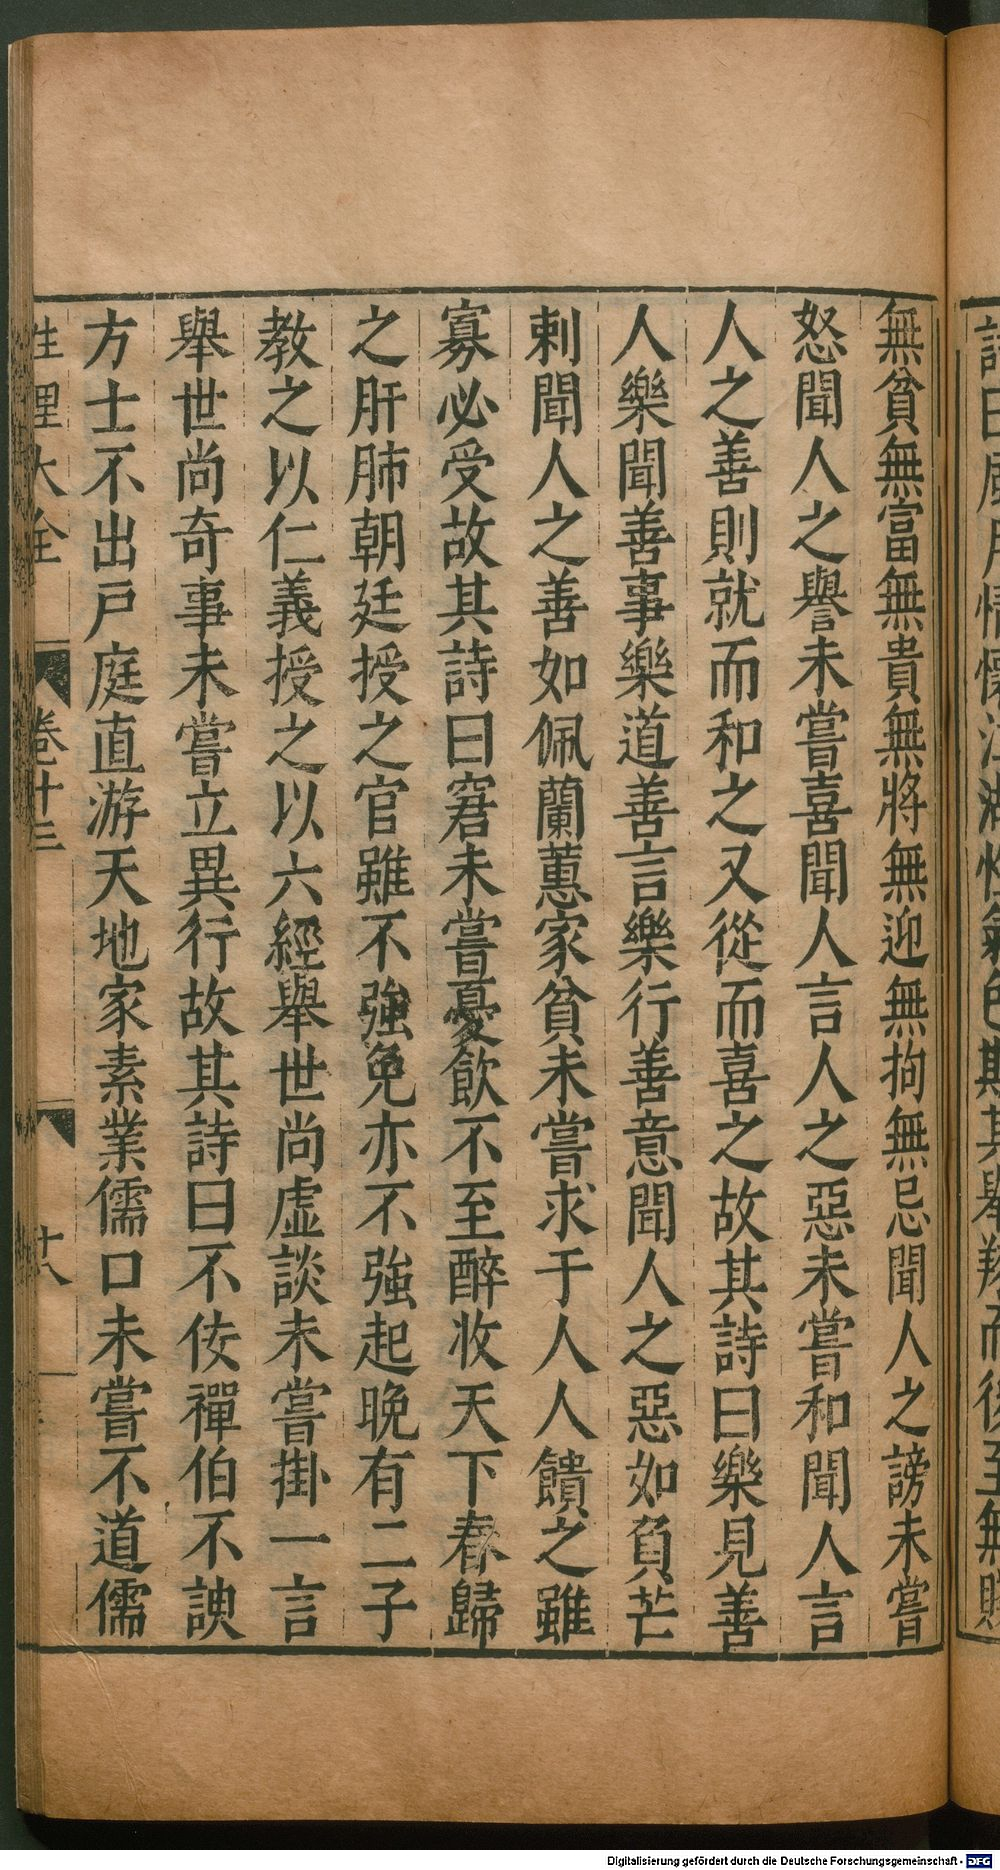 詩曰風月情懷江湖性氣色斯其舉翔而後至無賤
無貧無富無貴無將無迎無拘無忌聞人之謗未嘗
怒聞人之譽未嘗喜聞人言人之惡未嘗和聞人言
人之善則就而和之又從而喜之故其詩曰樂見善
人樂聞善事樂道善言樂行善意聞人之惡如負芒
刺聞人之善如佩蘭蕙家貧未嘗求于人人饋之雖
寡必受故其詩曰窘未嘗憂飲不至醉收天下春歸
之肝肺朝廷授之官雖不強免亦不強起晚有二子
教之以仁義授之以六經舉世尚虛談未嘗掛一言
舉世尚奇事未嘗立異行故其詩曰不佞禪伯不諛
方士不出戶庭直游天地家素業儒口未嘗不道儒
性理大全 卷十三 十八
Digitalisierung gefördert durch die Deutsche Forschungsgemeinschaft - DFG